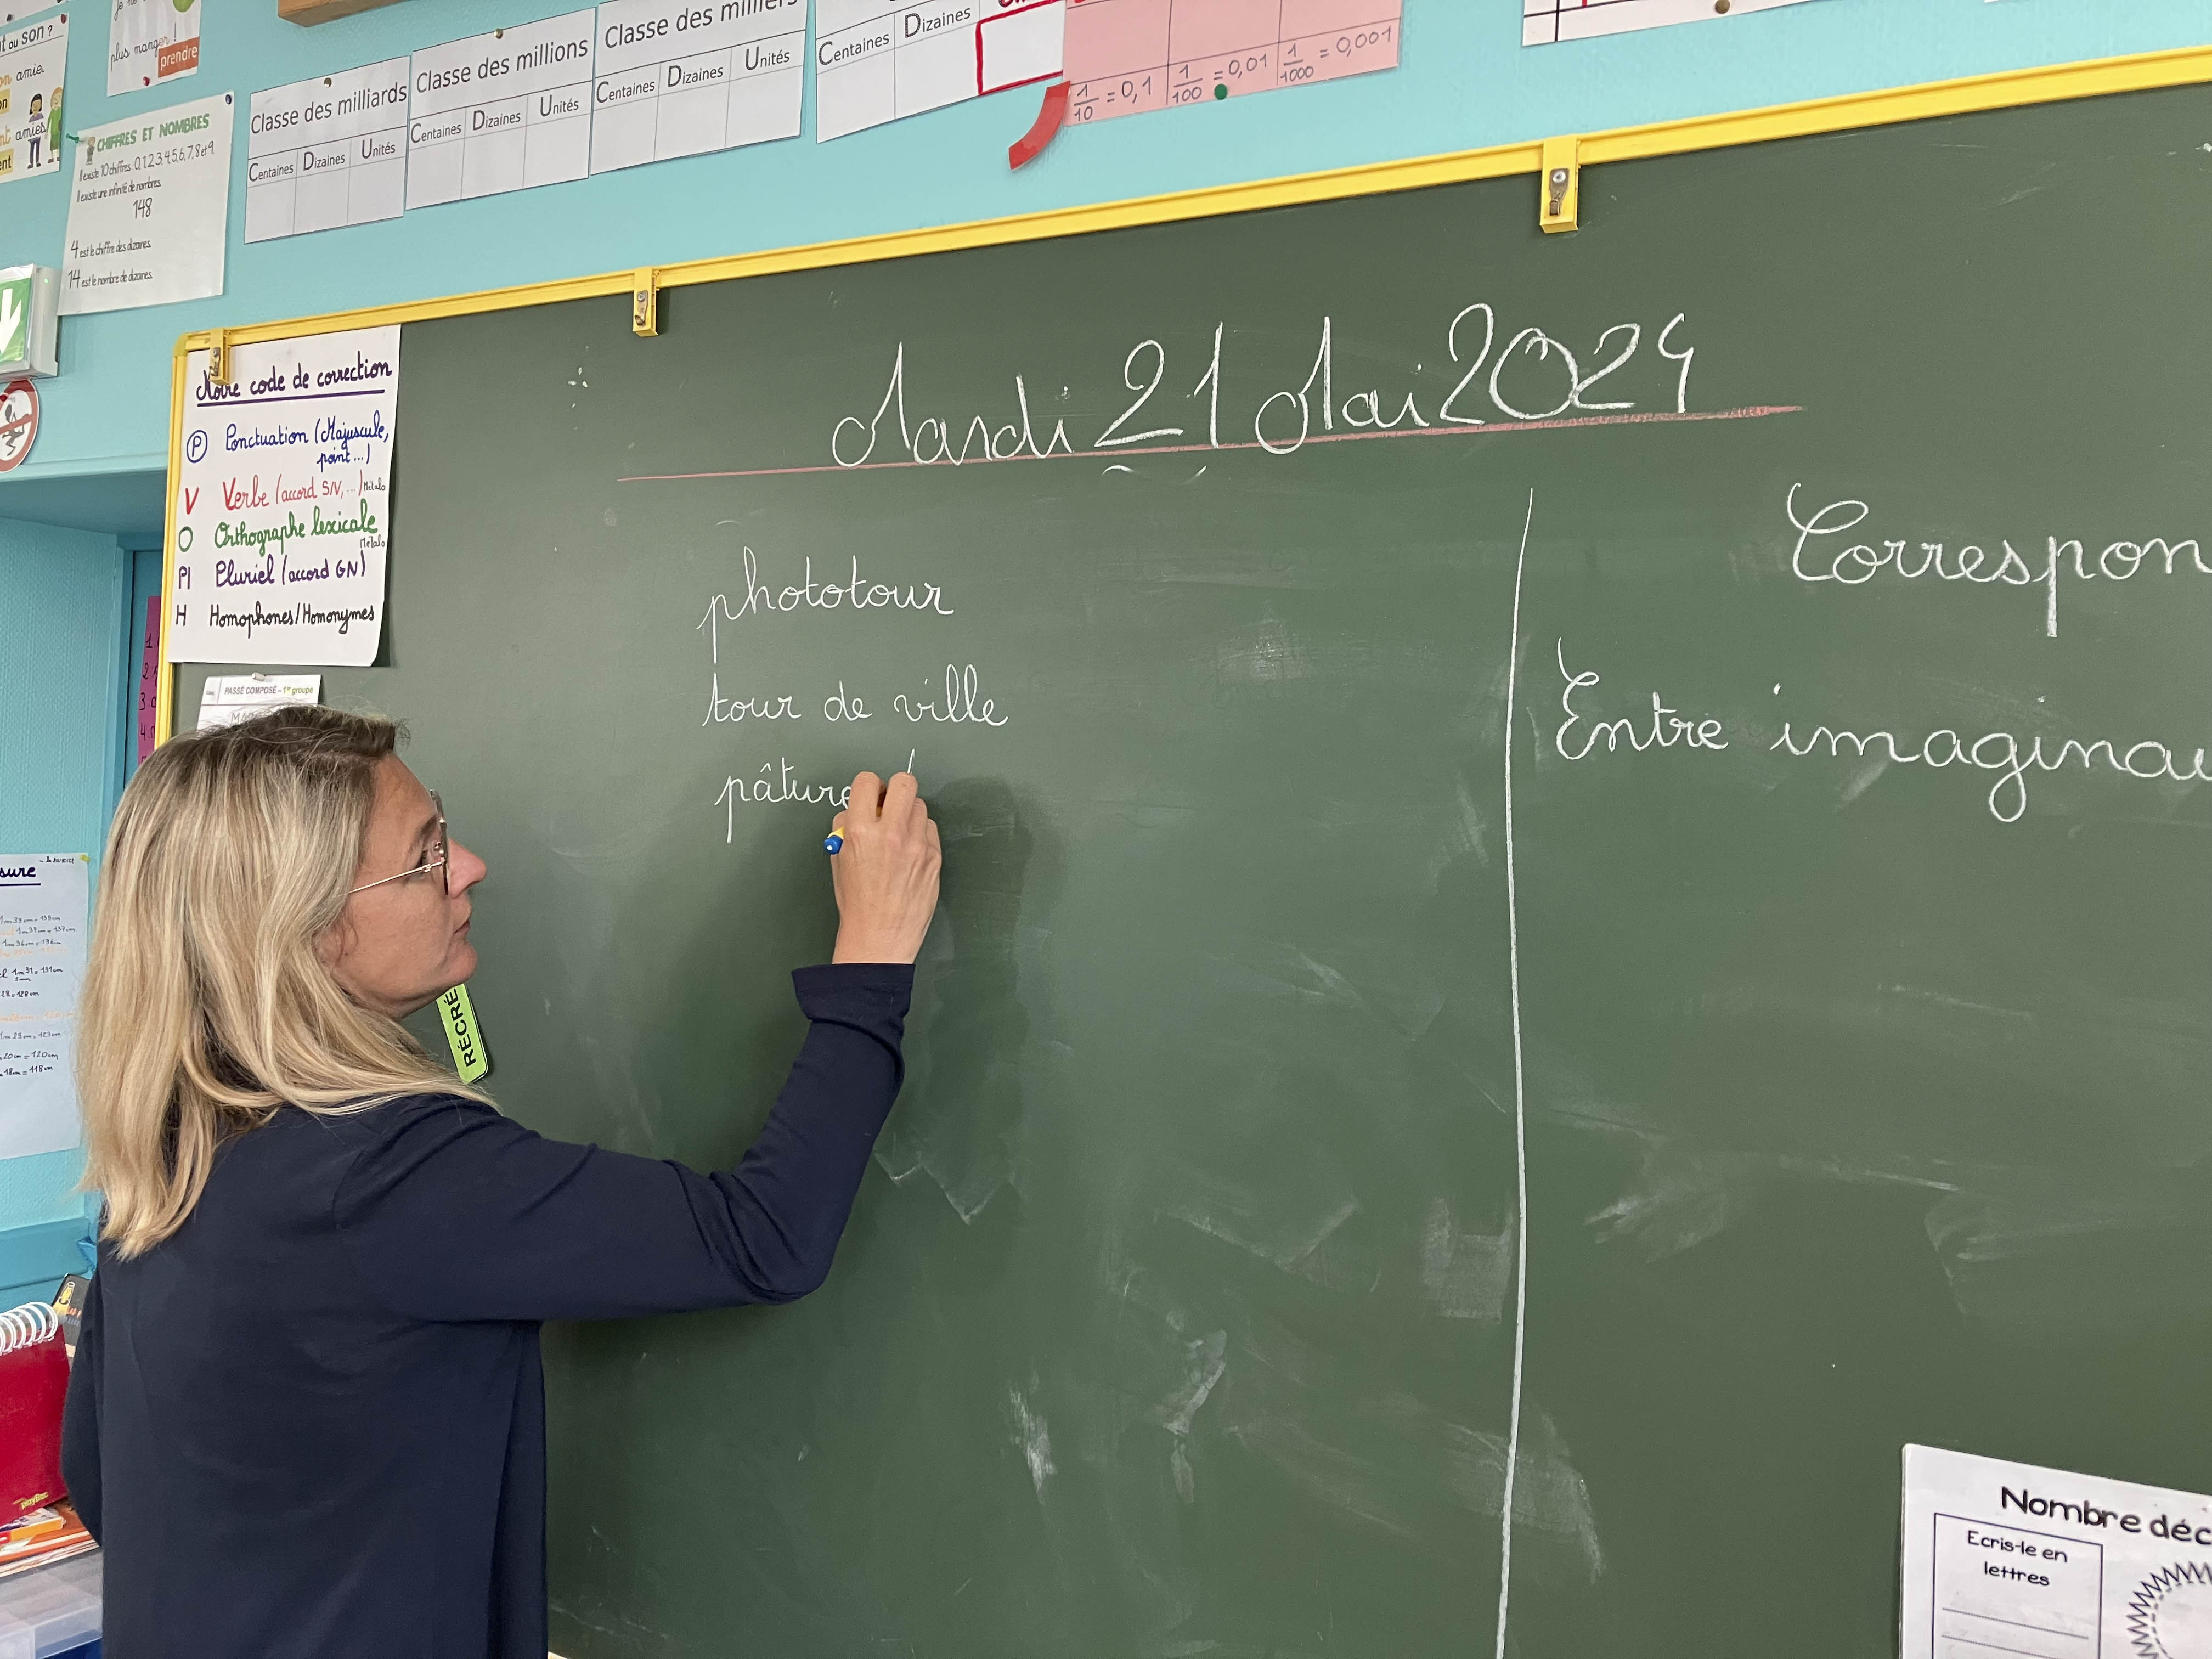 plus manger !
prendre
t ou son ?
amie.
amies
CHIFFRES ET NOMBRES
Il existe 10 chiffres: 0,1,2,3,4,5,6,7,8 et 9.
Il existe une infinité de nombres.
148
4 est le chiffre des dizaines.
14 est le nombre de dizaines.
Classe des milliards
Centaines Dizaines Unités
Classe des millions
Centaines Dizaines Unités
Classe des milliers
Centaines Dizaines Unités
Centaines Dizaines
1/10 = 0,1 1/100 = 0,01 1/1000 = 0,001
Notre code de correction
P Ponctuation (Majuscule,
point...)
V Verbe (accord S/V, ...)
O Orthographe lexicale
Pl Pluriel (accord GN)
H Homophones/Homonymes
PASSÉ COMPOSÉ – 1er groupe
Mardi 21 Mai 2024
phototour
tour de ville
pâture
Correspon
Entre imaginai
RÉCRÉ
sure
Nombre déc
Ecris-le en
lettres